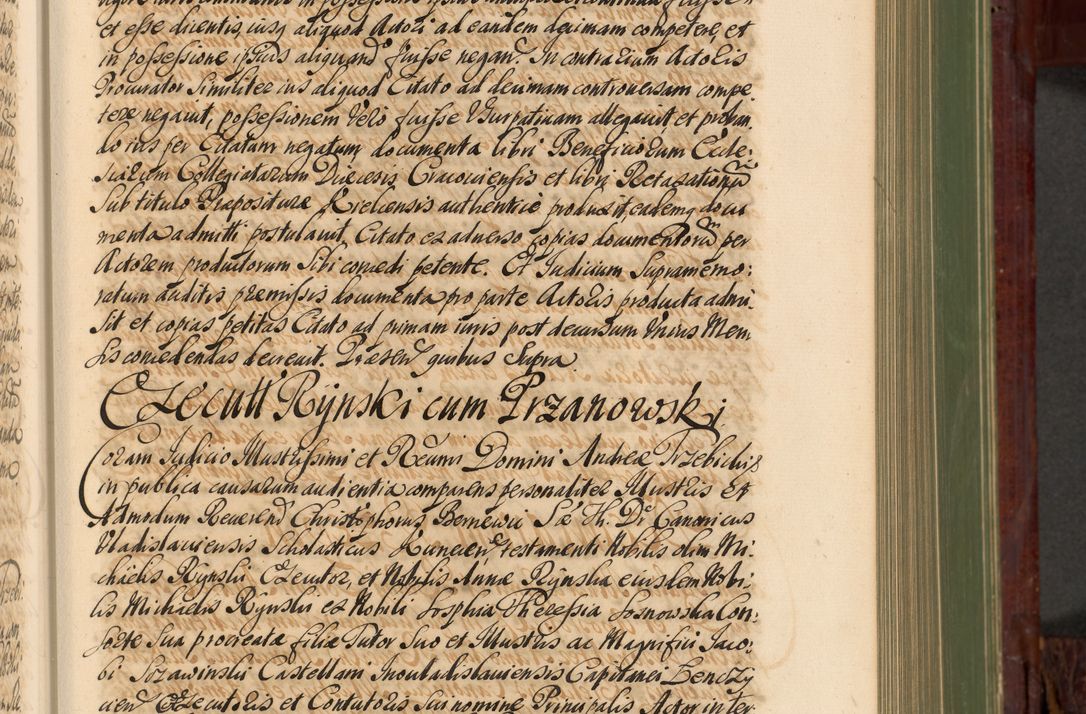 et esse dicentis, iusq aliquod Actori ad eandem decimam competere, et
in possessione ipsius aliquand fuisse negan. In contrarium Actoris
Procurator similiter ius aliquod Citato ad decimam controversam compe
tere negavit, possessionem vero fuisse usurpativam allegavit et proban
do ius per Citatum negatum documenta libri Beneficiorum Eccle
siarum Collegiatarum Diæcesis Cracoviensis et libri Retaxationu
sub titulo Præposituræ Kielcensis authentice produxit, eademq docu
menta admitti postulavit, Citato ex adverso copias documentorum per
Actorem productorum sibi concedi petente. Et Iudicium supramemo:
ratum auditis præmissis documenta pro parte Actoris producta admi
sit et copias petitas Citato ad primam iuris post decursum unius Men
sis concedendas decrevit. Præsen quibus supra
Executt Rynski cum Przanowski
Coram Iudicio Illustrissimi et Reumi Domini Andreæ Trzebicki
in publica causarum audientia comparens personaliter Illustris et
Admodum Reverend Christophorus Bernewic S æ Th. Dr Canonicus
Vladislaviensis Scholasticus testamenti Nobilis olim Mi:
chaelis Rynski Executor, et Nobilis Annæ Rynska eiusdem Nobi:
lis Michaelis Rynski ex Nobili Sophia Theressia Sosnowska Con:
sorte sua procreatæ filiæ Tutor suo et Illustris ac Magnifici Iaco:
bi Szczawinski Castellani Inowladislaviensis Capitanei Lenczy
cien Executoris et Contutoris sui nomine Principalis Actor in ter